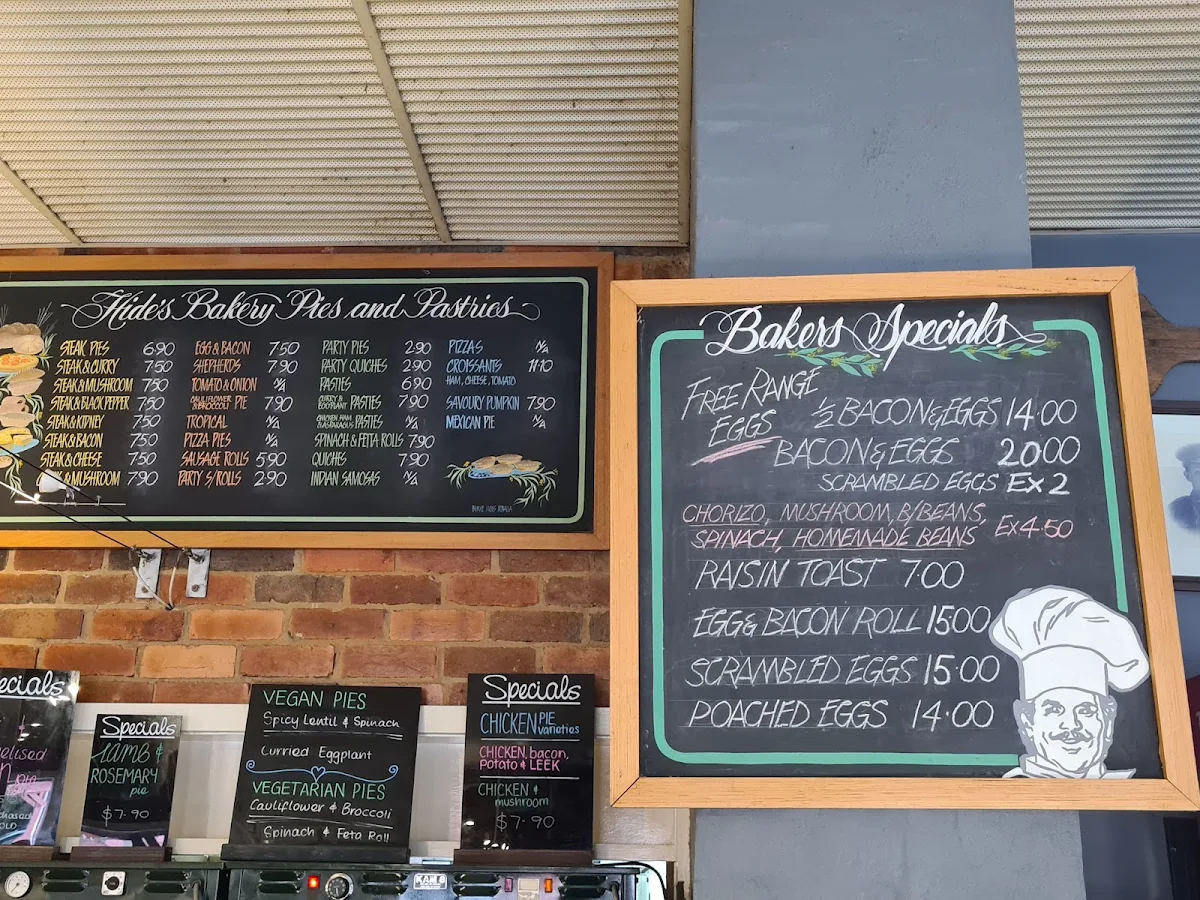 Hide's Bakery Pies and Pastries
STEAK PIES 6.90
STEAK & CURRY 7.50
STEAK & MUSHROOM 7.50
STEAK & BLACK PEPPER 7.50
STEAK & KIPNEY 7.50
STEAK & BACON 7.50
STEAK & CHEESE 7.50
& MUSHROOM 7.90
EGG & BACON 7.50
SHEPHERDS 7.90
TOMATO & ONION N/A
CAULIFLOWER
& BROCCOLI PIE 7.90
TROPICAL N/A
PIZZA PIES N/A
SAUSAGE ROLLS 5.90
PARTY S/ROLLS 2.90
PARTY PIES 2.90
PARTY QUICHES 2.90
PASTIES 6.90
CURRY &
EGGPLANT PASTIES 7.90
PASTIES N/A
SPINACH & FETTA ROLLS 7.90
QUICHES 7.90
INDIAN SAMOSAS N/A
PIZZA'S N/A
CROISSANTS
HAM, CHEESE, TOMATO
SAVOURY PUMPKIN 7.90
MEXICAN PIE N/A
Bakers Specials
FREE RANGE
EGGS
½ BACON & EGGS 14.00
BACON & EGGS 20.00
SCRAMBLED EGGS EX 2
CHORIZO, MUSHROOM, B/BEANS,
SPINACH, HOMEMADE BEANS EX 4.50
RAISIN TOAST 7.00
EGG & BACON ROLL 15.00
SCRAMBLED EGGS 15.00
POACHED EGGS 14.00
ecials
elised
Specials
LAMB &
ROSEMARY
pie
$7.90
VEGAN PIES
Spicy Lentil & Spinach
Curried Eggplant
VEGETARIAN PIES
Cauliflower & Broccoli
Spinach & Feta Roll
Specials
CHICKEN PIE
varieties
CHICKEN, bacon,
Potato & LEEK
CHICKEN &
mushroom
$7.90